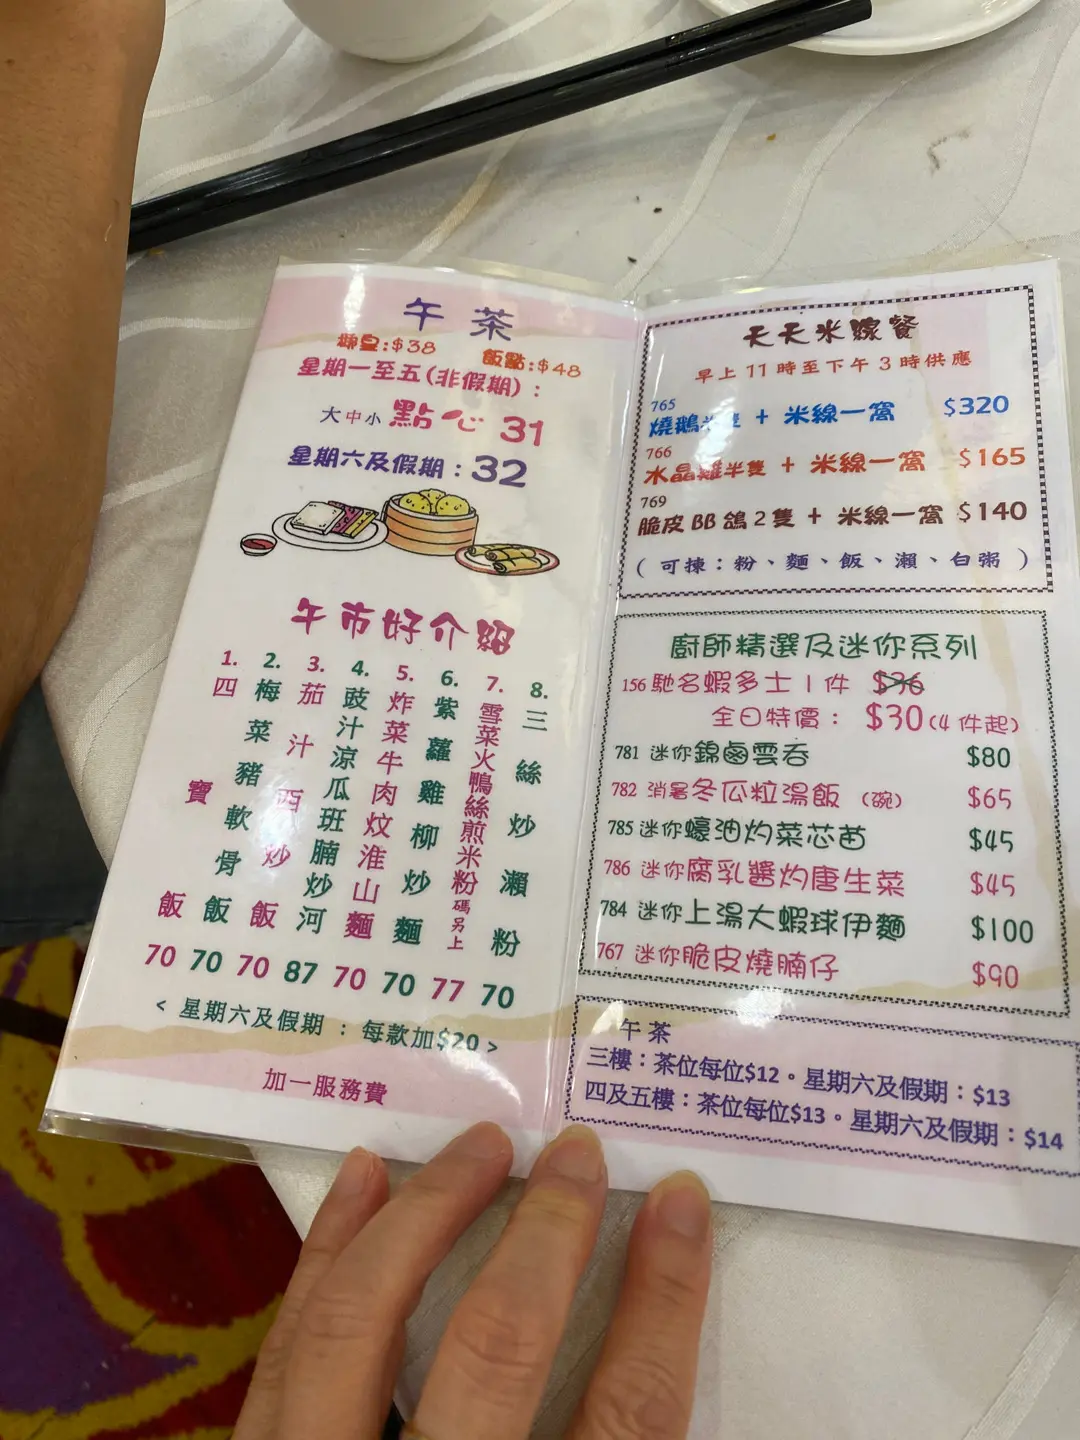 午茶
獅皇:$38 飯點:$48
星期一至五(非假期):
大中小 點心 31
星期六及假期:32
午市好介紹
1. 四寶飯 70
2. 梅菜豬軟骨飯 70
3. 茄汁西炒飯 70
4. 豉汁涼瓜班腩炒河 87
5. 炸菜牛肉炆淮山麵 70
6. 紫蘿雞柳炒麵 70
7. 雪菜火鴨絲煎米粉碼另上 77
8. 三絲炒瀨粉 70
< 星期六及假期 : 每款加$20 >
加一服務費
天天米線餐
早上 11 時至下午 3 時供應
765
燒鵝半隻 + 米線一窩 $320
766
水晶雞半隻 + 米線一窩 $165
769
脆皮 BB 鴿 2 隻 + 米線一窩 $140
( 可揀:粉、麵、飯、瀨、白粥 )
廚師精選及迷你系列
156 馳名蝦多士 1 件 $36
全日特價: $30 (4 件起)
781 迷你錦鹵雲吞 $80
782 消暑冬瓜粒湯飯 (碗) $65
785 迷你蠔油灼菜芯苗 $45
786 迷你腐乳醬灼唐生菜 $45
784 迷你上湯大蝦球伊麵 $100
767 迷你脆皮燒腩仔 $90
午茶
三樓:茶位每位$12。星期六及假期:$13
四及五樓:茶位每位$13。星期六及假期:$14